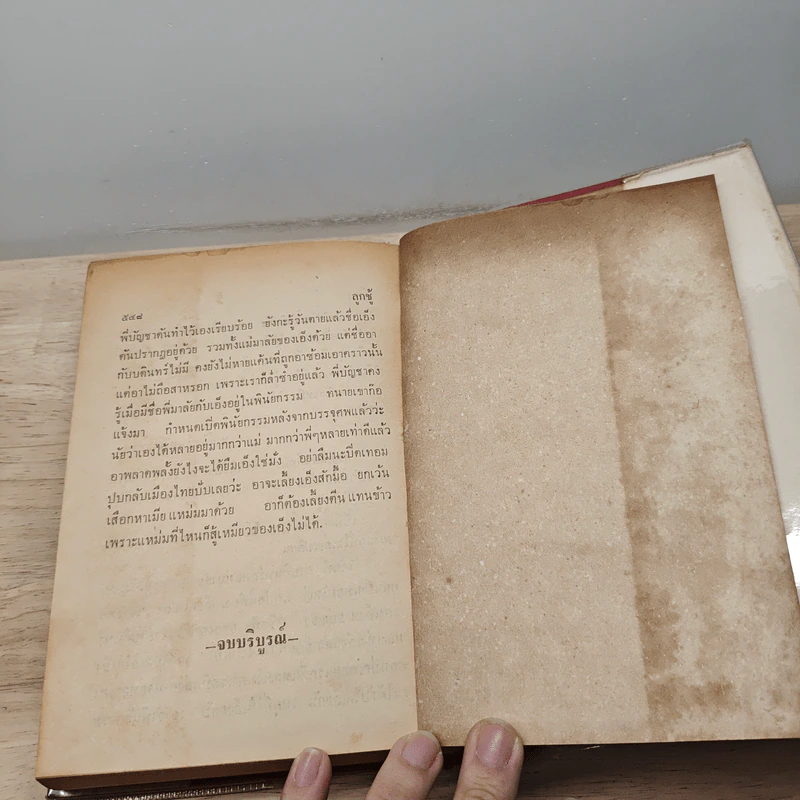 ๕๔๘
ลูกชู้
พี่บัญชาดันทำไว้เองเรียบร้อย ยังกะรู้วันตายแล้วชื่อเอ็ง
ดันปรากฏอยู่ด้วย รวมทั้งแม่มาลัยของเอ็งด้วย แต่ชื่ออา
กับบดินทร์ไม่มี คงยังไม่หายแค้นที่ถูกอาซ้อมเอาคราวนั้น
แต่อาไม่ถือสาหรอก เพราะเราก็ล่ำซำอยู่แล้ว พี่บัญชาคง
รู้เมื่อมีชื่อพี่มาลัยกับเอ็งอยู่ในพินัยกรรม ทนายเขาก็อ
แจ้งมา กำหนดเปิดพินัยกรรมหลังจากบรรจุศพแล้วว่ะ
นัยว่าเอ็งได้หลายอยู่มากกว่าแม่ มากกว่าพี่ๆหลายเท่าดีแล้ว
อาพลาดพลั้งยังไงจะได้ยืมเอ็งใช่มั่ง อย่าลืมนะปิดเทอม
ปุบกลับเมืองไทยบั่บเลยว่ะ อาจะเลี้ยงเอ็งสักมื้อ ยกเว้น
เสือกหาเมีย แหม่มมาด้วย อาก็ต้องเลี้ยงตีน แทนข้าว
เพราะแหม่มที่ไหนก็สู้เหมียวของเอ็งไม่ได้.
—จบบริบูรณ์—